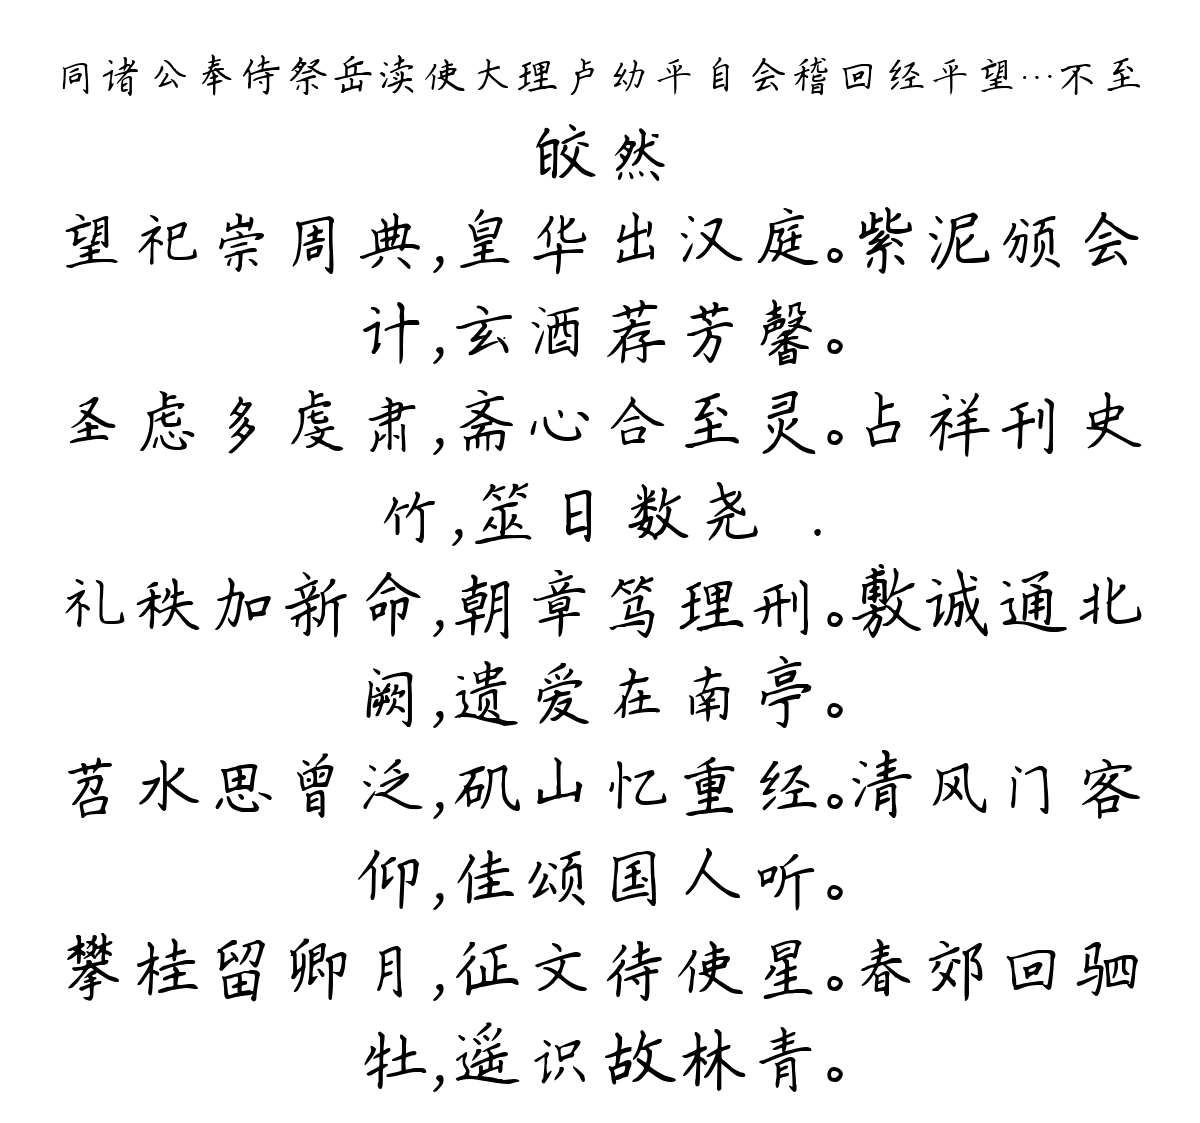 同诸公奉侍祭岳渎使大理卢幼平自会稽回经平望…不至
皎然
望祀崇周典,皇华出汉庭。紫泥颁会
计,玄酒荐芳馨。
圣虑多虔肃,斋心合至灵。占祥刊史
竹,筮日数尧 .
礼秩加新命,朝章笃理刑。敷诚通北
阙,遗爱在南亭。
苕水思曾泛,矶山忆重经。清风门客
仰,佳颂国人听。
攀桂留卿月,征文待使星。春郊回驷
牡,遥识故林青。